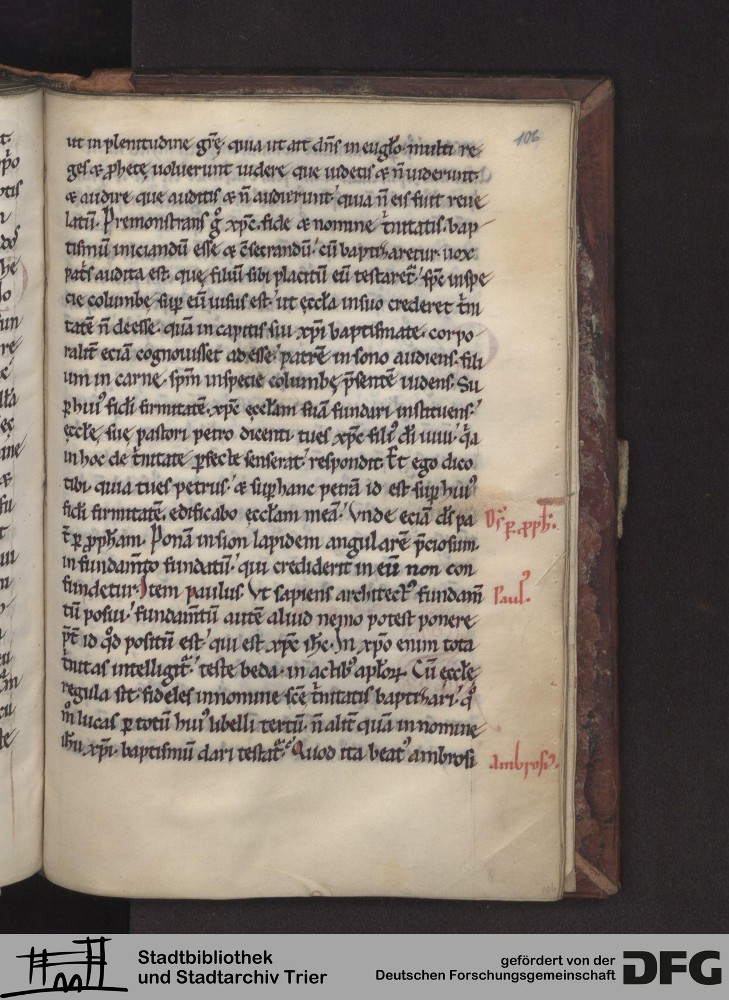 106
ut in plenitudine gr̄ę. quia ut ait dn̄s in euglo. multi re
ges & ꝓphetę uoluerunt uidere que uidetis & n̄ uiderunt.
& audire que auditis & n̄ audierunt. quia n̄ eis fuit reue
latū. Premonstrans gͦ xp̄c. fide & nomine t̄nitatis. bap
tismū iniciandū esse & c̄secrandū. cū baptizaretur. uox
pat̄s audita est. quę filiū sibi placitū eū testaret᷑. sp̄c inspe
cie columbę sup̄ eū uisus est. ut eccl̄a insuo crederet t̄ni
tatē n̄ deesse. quā in capitis sui xp̄i baptismate. corpo
ralit̄ eciā cognouisset adesse. patrē in sono audiens. fili
um in carne. sp̄m inspecie columbę p̄sentē uidens. Su
ꝑ huiꝰ fidi firmitatē. xp̄c ęccl̄am suā fundari instituens.
ęccl̄ę suę pastori petro dicenti. tues xp̄c filiꝰ di uiui. q̄a
in hoc de t̄nitate ꝑfecte senserat. respondit. Et ego dico
tibi. quia tues petrus. & sup̄ hanc petrā id est sup̄ huiꝰ
fidi firmitatē. edificabo ęccl̄am meā. Vnde eciā ds̄ pa
t̄ ꝑ ꝓph̄am. Ponā insion lapidem angularē p̄ciosum.
in fundam̄to fundatū. qui crediderit in eū non con
fundetur. Item paulus. Vt sapiens architectꝰ fundam̄
tū posui. fundam̄tū autē aliud nemo potest ponere
p̄t id qd̄ positū est. qui est xp̄c ih̄c. In xp̄o enim tota
t̄nitas intelligit᷑. teste beda. in actibꝰ apl̄oꝝ. Cū ęccl̄ę
regula sit. fideles innomine sc̄ę t̄nitatis baptizari. qͦ
m̄ lucas ꝑ totū huiꝰ libelli tertū. n̄ alit̄ quā in nomine
ih̄u xp̄i. baptismū dari testat᷑. Quod ita beatꝰ ambrosi
Ds̄ ꝑ ꝓph̄.
Paulꝰ.
Ambrosiꝰ.
Stadtbibliothek
und Stadtarchiv Trier
gefördert von der
Deutschen Forschungsgemeinschaft
DFG